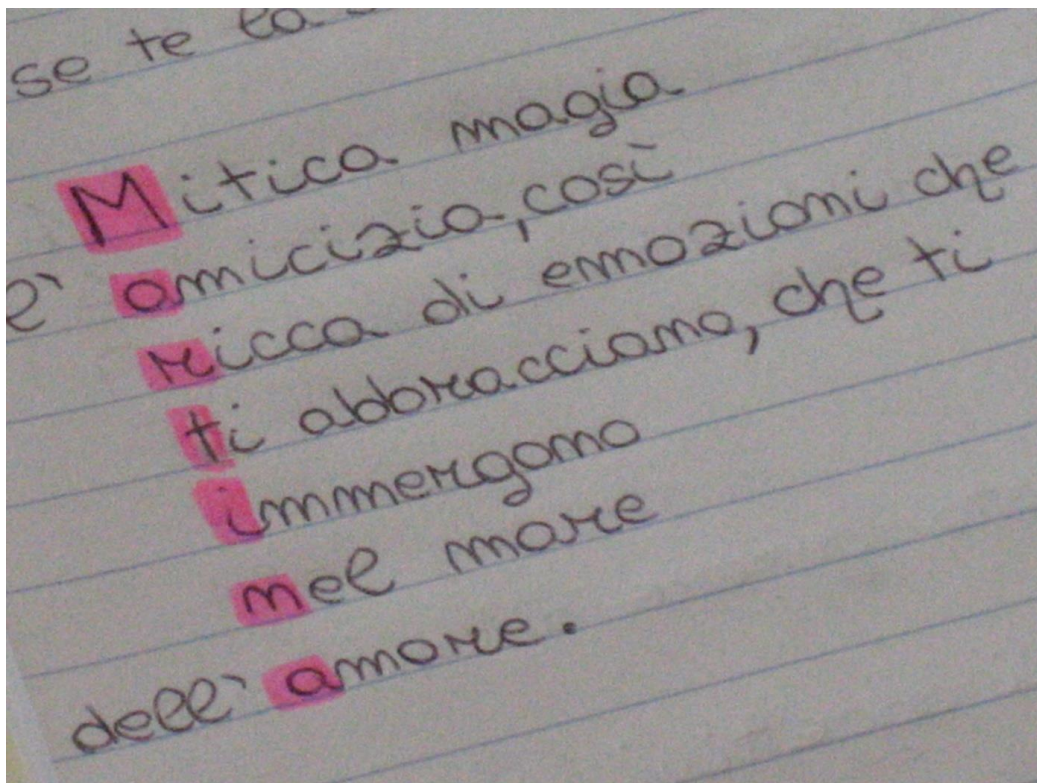 se te la
Mitica magia
è amicizia, così
ricca di emozioni che
ti abbracciano, che ti
immergono
nel mare
dell'amore.